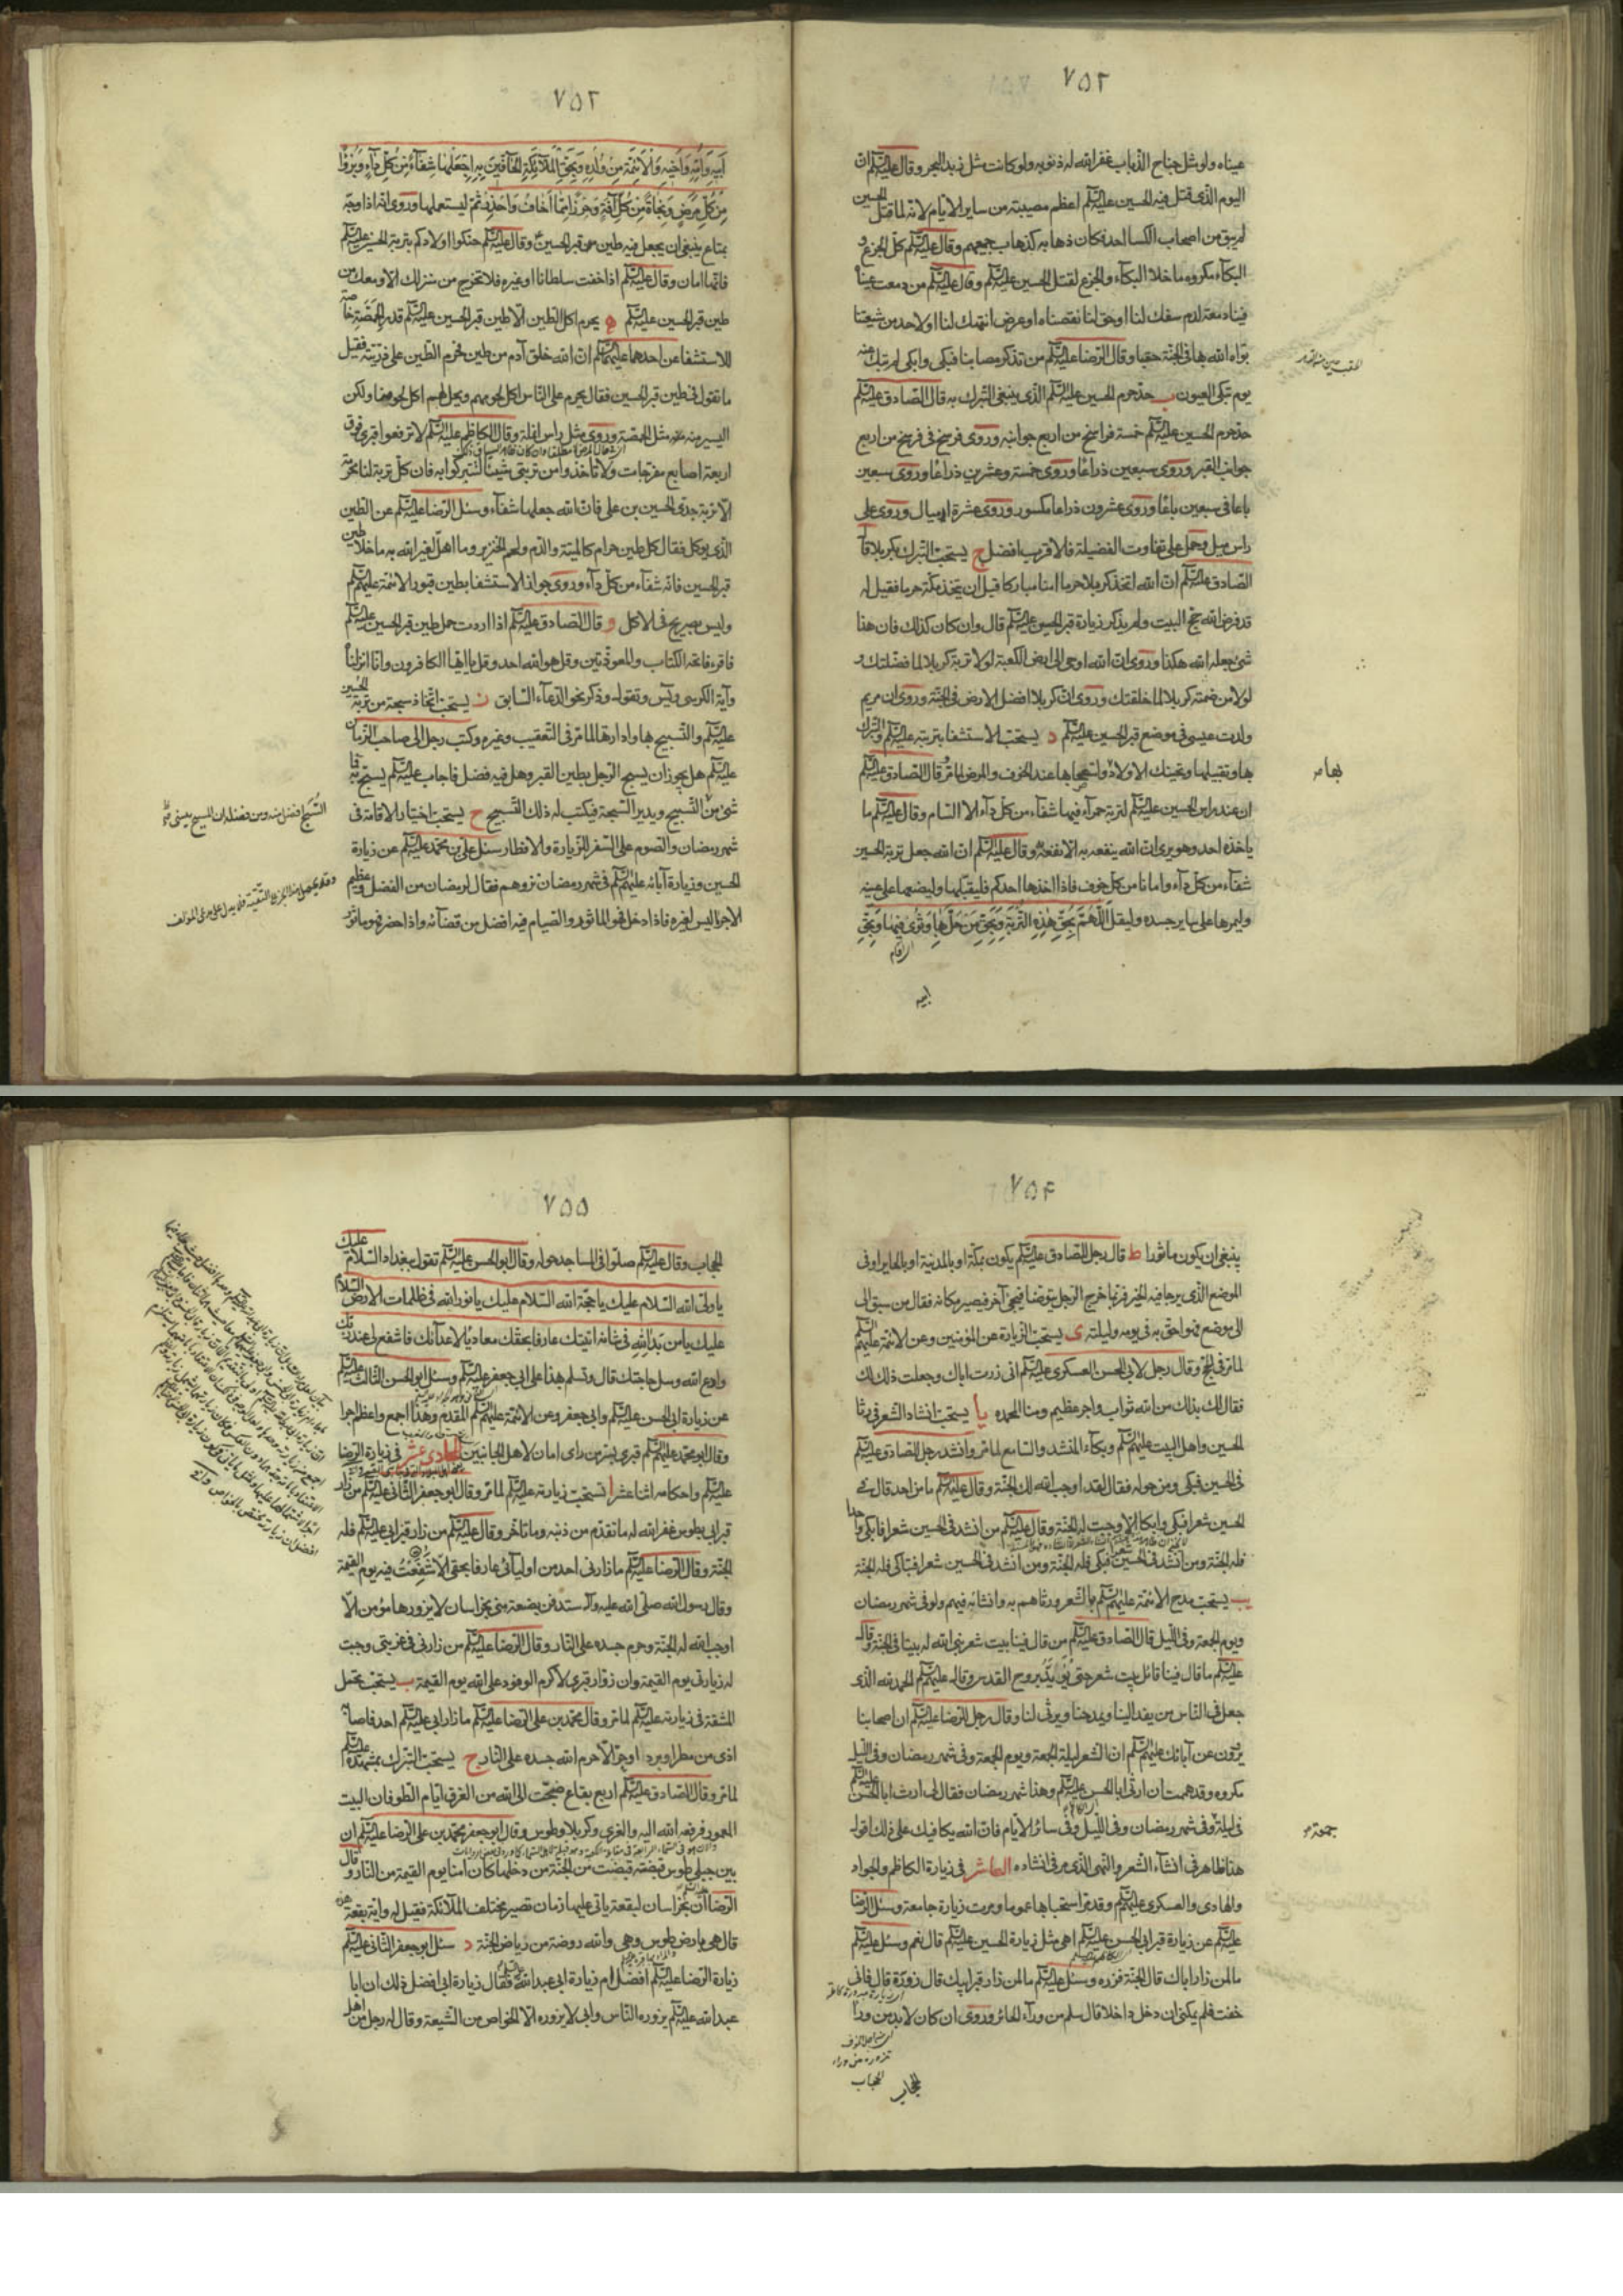 ٧٥٢
عيناه ولو مثل جناح الذباب غفر الله له ذنوبه ولو كانت مثل زبد البحر وقال عليه السلم ان
اليوم الذى قتل فيه الحسين عليه السلم اعظم مصيبته من ساير الايام لانه لما قتل الحسين
لم يبق من اصحاب الكسا احد فكان ذهابه كذهاب جميعهم وقال عليه السلم كل الجزع و
البكاء مكروه ما خلا البكاء والجزع لقتل الحسين عليه السلم وقال عليه السلم من دمعت عيناه
فينا دمعة لدم سفك لنا او حق لنا نقصناه او عرض انتهك لنا او لاحد من شيعتنا
بوأه الله بها فى الجنة حقبا وقال الرضا عليه السلم من تذكر مصابنا فبكى وابكى لم تبك عينه
يوم تبكى العيون ب حد حرم الحسين عليه السلم الذى ينبغى التبرك به قال الصادق عليه السلم
حد حرم الحسين عليه السلم خمسة فراسخ من اربع جوانبه وروى فرسخ فى فرسخ من اربع
جوانب القبر وروى سبعين ذراعا وروى خمسة وعشرين ذراعا وروى سبعين
باعا فى سبعين باعا وروى عشرون ذراعا مكسور وروى عشرة اميال وروى على
راس ميل وحمل على تفاوت الفضيلة فالاقرب افضل ج يستحب التبرك بكربلا قال
الصادق عليه السلم ان الله اتخذ كربلا حرما امنا مباركا قبل ان يتخذ مكة حرما فقيل له
قد فرض الله حج البيت ولم يذكر زيارة قبر الحسين عليه السلم قال وان كان كذلك فان هذا
شىء جعله الله هكذا وروى ان الله اوحى الى ارض الكعبة لولا تربة كربلا لما فضلتك و
لولا من ضمنته كربلا لما خلقتك وروى ان كربلا افضل الارض فى الجنة وروى ان مريم
ولدت عيسى فى موضع قبر الحسين عليه السلم د يستحب الاستشفا بتربته عليه السلم والتبرك
بها وتقبيلها وتحنيك الاولاد واستصحابها عند الخوف والمرض لما مر وقال الصادق عليه السلم
ان عند راس الحسين عليه السلم لتربة حمراء فيها شفاء من كل داء الا السام وقال عليه السلم ما
ياخذه احد وهو يرى ان الله ينفعه به الا نفعه وقال عليه السلم ان الله جعل تربة الحسين
شفاء من كل داء وامانا من كل خوف فاذا اخذها احدكم فليقبلها وليضعها على عينه
وليمرها على ساير جسده وليقل اللهم بحق هذه التربة وبحق من حل بها وثوى فيها وبحق
اى اقام
ابيه
بها مر
٧٥٣
ابيه وامه واخيه والائمة من ولده وبحق الملائكة الحافين به اجعلها شفاء من كل داء وبرؤا
من كل مرض ونجاة من كل آفة وحرزا مما اخاف واحذر ثم ليستعملها وروى انه اذا وجه
بمتاع ينبغى ان يجعل فيه طين من قبر الحسين ع وقال عليه السلم حنكوا اولادكم بتربة الحسين عليه السلم
فانها امان وقال عليه السلم اذا خفت سلطانا او غيره فلا تخرج من منزلك الا ومعك من
طين قبر الحسين عليه السلم ه يحرم اكل الطين الا طين قبر الحسين عليه السلم قدر الحمصة خاصة
للاستشفا عن احدهما عليهما السلم ان الله خلق آدم من طين فحرم الطين على ذريته فقيل
ما تقول فى طين قبر الحسين فقال يحرم على الناس اكل لحومهم ويحل لهم اكل لحومنا ولكن
اليسير منه مثل الحمصة وروى مثل راس انملة وقال الكاظم عليه السلم لا ترفعوا قبرى فوق
اربعة اصابع مفرجات ولا تاخذوا من تربتى شيئا لتتبركوا به فان كل تربة لنا محرمة
الا تربة جدى الحسين بن على فان الله جعلها شفاء وسئل الرضا عليه السلم عن الطين
الذى يؤكل فقال كل طين حرام كالميتة والدم ولحم الخنزير وما اهل لغير الله به ما خلا طين
قبر الحسين فانه شفاء من كل داء وروى جواز الاستشفا بطين قبور الائمة عليهم السلم
وليس بصريح فى الاكل و قال الصادق عليه السلم اذا اردت حمل طين قبر الحسين عليه السلم
فاقرء فاتحة الكتاب والمعوذتين وقل هو الله احد وقل يا ايها الكافرون وانا انزلناه
وآية الكرسى ويس وتقول وذكر نحو الدعاء السابق ز يستحب اتخاذ سبحة من تربة الحسين
عليه السلم والتسبيح بها وادارتها لما مر فى التعقيب وغيره وكتب رجل الى صاحب الزمان
عليه السلم هل يجوز ان يسبح الرجل بطين القبر وهل فيه فضل فاجاب عليه السلم يسبح به فما
شىء من التسبيح ويدير السبحة فيكتب له ذلك التسبيح ح يستحب اختيار الاقامة فى
شهر رمضان والصوم على السفر للزيارة والافطار سئل على بن محمد عليه السلم عن زيارة
الحسين وزيارة آبائه عليهم السلم فى شهر رمضان نزورهم فقال لرمضان من الفضل وعظيم
الاجر ما ليس لغيره فاذا دخل فهو الماثور والصيام فيه افضل من قضائه واذا حضر فهو ماثور
٧٥٤
ينبغى ان يكون ماثورا ط قال رجل للصادق عليه السلم يكون بمكة او بالمدينة او بالحاير او فى
الموضع الذى يرجا فيه الخير فربما خرج الرجل يتوضا فيجىء آخر فيصير مكانه فقال من سبق الى
الى موضع فهو احق به فى يومه وليلته ى يستحب الزيارة عن المؤمنين وعن الائمة عليهم السلم
لما مر فى الحج وقال رجل لابى الحسن العسكرى عليه السلم انى زرت اباك وجعلت ذلك لك
فقال لك بذلك من الله ثواب واجر عظيم ومنا المحمدة يا يستحب انشاد الشعر فى رثا
الحسين واهل البيت عليهم السلم وبكاء المنشد والسامع لما مر وانشد رجل الصادق عليه السلم
فى الحسين فبكى ومن حوله فقال لقد اوجب الله لك الجنة وقال عليه السلم ما من احد قال فى
الحسين شعرا فبكى وابكا الا وجبت له الجنة وقال عليه السلم من انشد فى الحسين شعرا فابكى واحدا
فله الجنة ومن انشد فى الحسين شعرا فبكى فله الجنة ومن انشد فى الحسين شعرا فتباكى فله الجنة
يب يستحب مدح الائمة عليهم السلم بالشعر ورثاهم به وانشائه فيهم ولو فى شهر رمضان
ويوم الجمعة وفى الليل قال الصادق عليه السلم من قال فينا بيت شعر بنى الله له بيتا فى الجنة وقال
عليه السلم ما قال فينا قائل بيت شعر حتى يؤيد بروح القدس وقال عليه السلم الحمد لله الذى
جعل فى الناس من يفد الينا ويمدحنا ويرثى لنا وقال رجل للرضا عليه السلم ان اصحابنا
يروون عن آبائك عليهم السلم ان الشعر ليلة الجمعة ويوم الجمعة وفى شهر رمضان وفى الليل
مكروه وقد هممت ان ارثى ابا الحسن عليه السلم وهذا شهر رمضان فقال لى ارث ابا الحسن عليه السلم
فى ليلة وفى شهر رمضان وفى الليل وفى سائر الايام فان الله يكافيك على ذلك اقول
هذا ظاهر فى انشاء الشعر والنهى الذى مر فى انشاده العاشر فى زيارة الكاظم والجواد
والهادى والعسكرى عليهم السلم وقد مر استحبابها عموما ومرت زيارة جامعة وسئل الرضا
عليه السلم عن زيارة قبر ابى الحسن عليه السلم اهى مثل زيارة الحسين عليه السلم قال نعم وسئل عليه السلم
ما لمن زار اباك قال الجنة فزره وسئل عليه السلم ما لمن زار قبر ابيك قال زوره قال فانى
خفت فلم يمكنى ان دخل داخلا قال سلم من وراء الحائر وروى ان كان لابد من وراء
الحجاب
٧٥٥
الحجاب وقال عليه السلم صلوا فى المساجد حوله وقال ابو الحسن عليه السلم تقول ببغداد السلام عليك
يا ولى الله السلام عليك يا حجة الله السلام عليك يا نور الله فى ظلمات الارض السلام
عليك يا من بدا لله فى شانه اتيتك عارفا بحقك معاديا لاعدائك فاشفع لى عند ربك
وادع الله وسل حاجتك قال وتسلم بهذا على ابى جعفر عليه السلم وسئل ابو الحسن الثالث عليه السلم
عن زيارة ابى الحسن عليه السلم وابى جعفر وعن الائمة عليهم السلم المقدم وهذا اجمع واعظم اجرا
وقال ابو محمد عليه السلم قبرى بسر من راى امان لاهل الجانبين الحادى عشر فى زيارة الرضا
عليه السلم واحكامه اثنا عشر ا تستحب زيارته عليه السلم لما مر وقال ابو جعفر الثانى عليه السلم من زار
قبر ابى بطوس غفر الله له ما تقدم من ذنبه وما تاخر وقال عليه السلم من زار قبر ابى عليه السلم فله
الجنة وقال الرضا عليه السلم ما زارنى احد من اوليائى عارفا بحقى الا شفعت فيه يوم القيمة
وقال رسول الله صلى الله عليه وآله ستدفن بضعة منى بخراسان لا يزورها مؤمن الا
اوجب الله له الجنة وحرم جسده على النار وقال الرضا عليه السلم من زارنى فى غربتى وجبت
له زيارتى يوم القيمة وان زوار قبرى لاكرم الوفود على الله يوم القيمة ب يستحب تحمل
المشقة فى زيارته عليه السلم لما مر وقال محمد بن على الرضا عليه السلم ما زار ابى عليه السلم احد فاصابه
اذى من مطر او برد او حر الا حرم الله جسده على النار ج يستحب التبرك بمشهده عليه السلم
لما مر وقال الصادق عليه السلم اربع بقاع ضجت الى الله من الغرق ايام الطوفان البيت
المعمور فرفعه الله اليه والغرى وكربلا وطوس وقال ابو جعفر محمد بن على الرضا عليه السلم ان
بين جبلى طوس قبضة قبضت من الجنة من دخلها كان امنا يوم القيمة من النار وقال
الرضا ان بخراسان لبقعة ياتى عليها زمان تصير مختلف الملائكة فقيل له واية بقعة هذه
قال هى بارض طوس وهى والله روضة من رياض الجنة د سئل ابو جعفر الثانى عليه السلم
زيارة الرضا عليه السلم افضل ام زيارة ابى عبد الله فقال زيارة ابى افضل ذلك ان ابا
عبد الله عليه السلم يزوره الناس وابى لا يزوره الا الخواص من الشيعة وقال له رجل من اهل